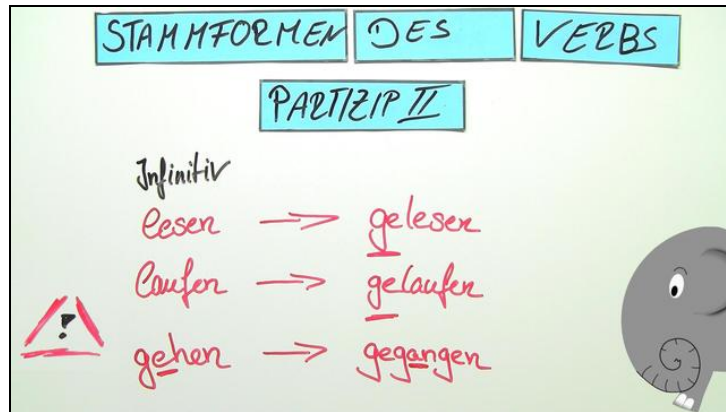 STAMMFORMEN DES VERBS
PARTIZIP II
Infinitiv
lesen → gelesen
laufen → gelaufen
!
gehen → gegangen